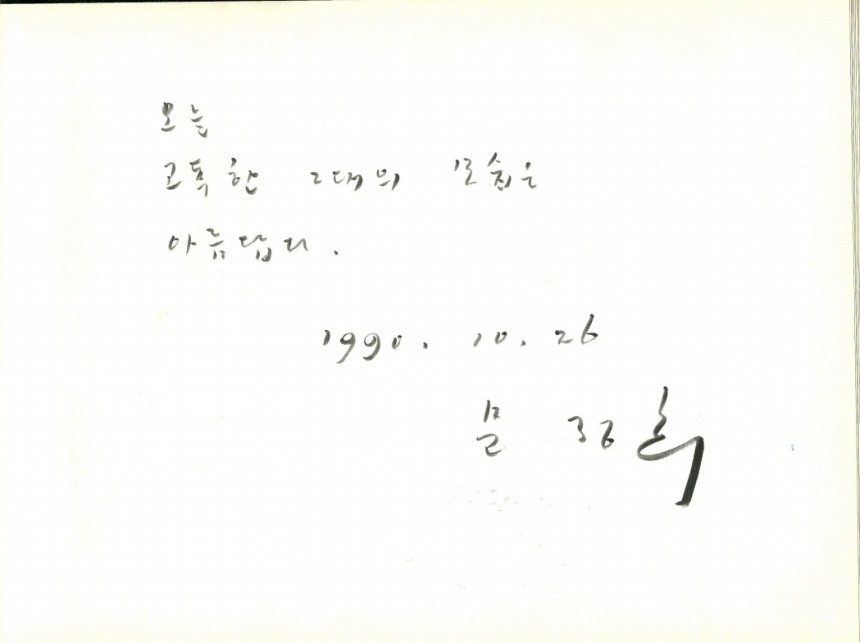 오늘
고독한 그대의 모습은
아름답다.
1990. 10. 26